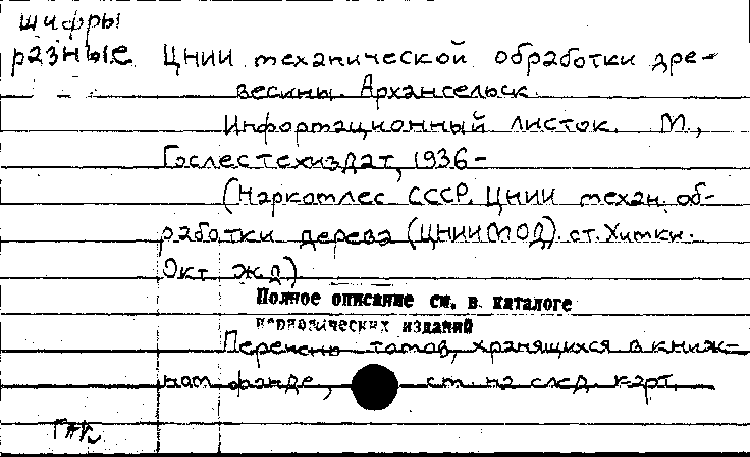 шифры
разные
ЦНИИ механической обработки дре-
весины. Архангельск.
Информационный листок. М.,
Гослестехиздат, 1936-
(Наркомлес СССР. ЦНИИ механ. об-
работки дерева (ЦНИИМОД). ст. Химки.
Окт. ж.д.)
Полное описание см. в каталоге
периодических изданий
Перечень томов, хранящихся в книж-
ном фонде, см. на след. карт.